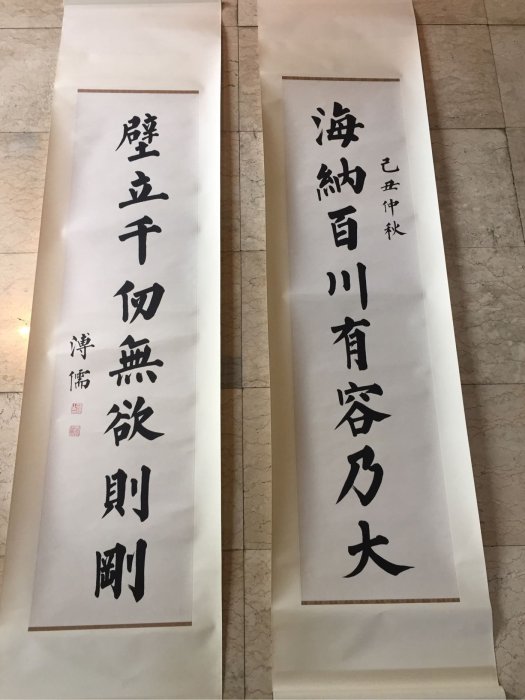 己丑仲秋
海納百川有容乃大
壁立千仞無欲則剛
溥儒